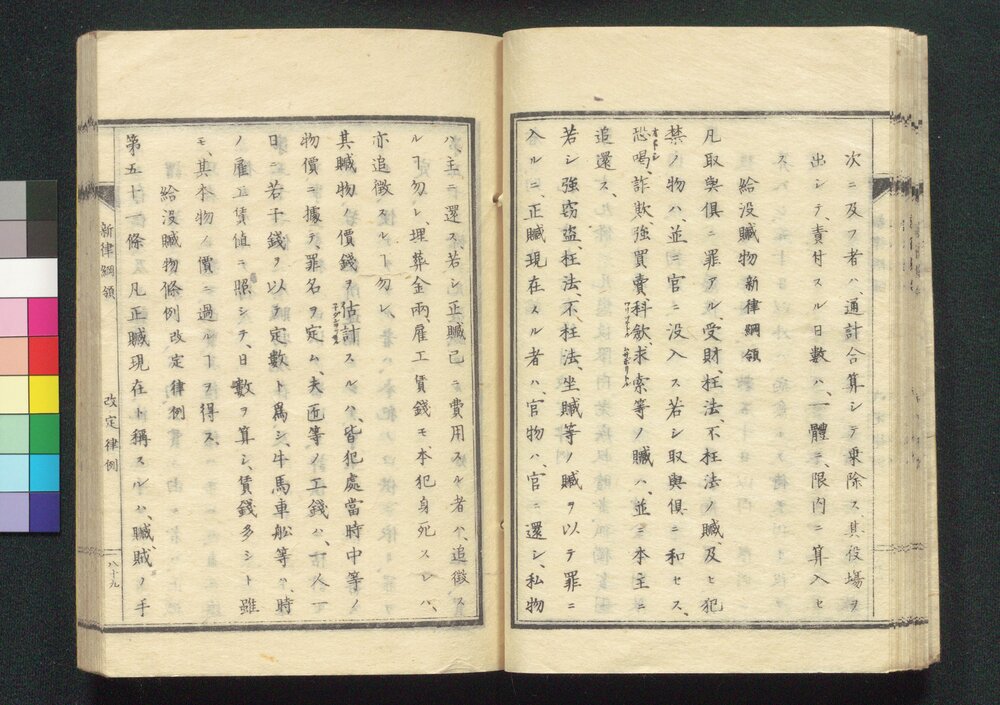 次ニ及フ者ハ、通計合算シテ東除ス、其役場ヲ
出シテ、責付スル日數ハ、一體ニ限内ニ算入セ
ス、
給没贓物 新律綱領
凡取與倶ニ罪アル受財、枉法、不枉法ノ贓、及ヒ犯
禁ノ物ハ、並ニ官ニ没入ス若シ取與倶ニ和セス、
恐喝、詐欺、強買賣科歛、求索等ノ贓ハ、並ニ本主ニ
追還ス、
若シ強竊盗、枉法、不枉法、坐贓等ノ贓ヲ以テ罪ニ
入ルニ正贓現在スル者ハ、官物ハ、官ニ還シ、私物
ハ主ニ還ス、若シ正贓已ニ費用スル者ハ、追徴ス
ルヿ勿レ、埋葬金兩、雇工賃錢モ、本犯身死スレハ、
亦追徴スルヿ勿レ、
其贓物ノ價錢ヲ估計スルハ、皆犯處當時中等ノ
物價ニ據テ、罪名ヲ定ム、夫匠等ノ工錢ハ、一人一
日ニ若干錢ヲ以テ定數ト爲シ、牛馬車船等ハ、時
ノ雇工賃値ニ照シテ、日數ヲ算シ、賃錢多シト雖
モ其本物ノ價ニ過ルヿヲ得ス、
給没贓物條例 改定律例
第五十一條 凡正贓現在ト稱スルハ、贓賊ノ手
新律綱領 改定律例 八十九